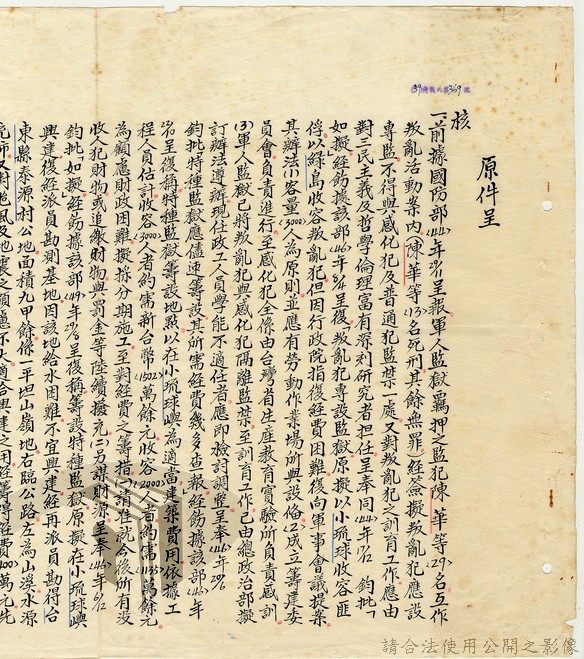 (39)防親人字第369號
原件呈
核
一前據國防部(44)年呈報軍人監獄羈押之監犯陳華等(29)名互作
叛亂活動案內陳華等(13)名死刑其餘無罪經簽擬叛亂犯應設
專監不得與感化犯及普通犯監禁一處又對叛亂犯之訓育工作應由
對三民主義及哲學倫理富有深刻研究者担任呈奉同(44)年 鈞批「
如擬」經飭據該部(46)年呈復「叛亂犯專設監獄原擬以小琉球收容匪
俘以綠島收容叛亂犯但因行政院指復經費困難復向軍事會議提案
其辦法(1)容量(3000)人為原則並應有勞動作業場所與設備(2)成立籌建委
員會負責進行至感化犯全係由台灣省生産教育實驗所負責感訓
(3)軍人監獄已將叛亂犯與感化犯隔離監禁至訓育工作已由總政治部擬
訂辦法遵辦現任政工人員學能不適任者應即檢討調整呈奉(46)年
鈞批「特種監獄應儘速籌設其所需經費幾多查報」經飭據該部(46)年
呈復稱特種監獄籌設地點以在小琉球嶼為適當建築費用依據工
程人員估計收容(3000)人者約需新台幣(1502)萬餘元收容(2000)人者約需(1133)萬餘元
為顧慮財政困難擬採分期施工至對經費之籌措(一)請准就今後所有沒
收人犯財物或追繳財物與罰金等陸續撥充(二)另謀財源呈奉(46)年
鈞批「如擬」經飭據該部(49)年呈復稱籌設特種監獄原擬在小琉球嶼
興建復經派員勘測基地因該地給水困難不宜興建經再派員勘得台
東縣泰源村公地面積九甲餘係一平坦山嶺地右臨公路左為山溪水源
充沛又對颱風及地震之顧慮亦不大適合興建之用經籌得經費400萬元先
請合法使用公開之影像